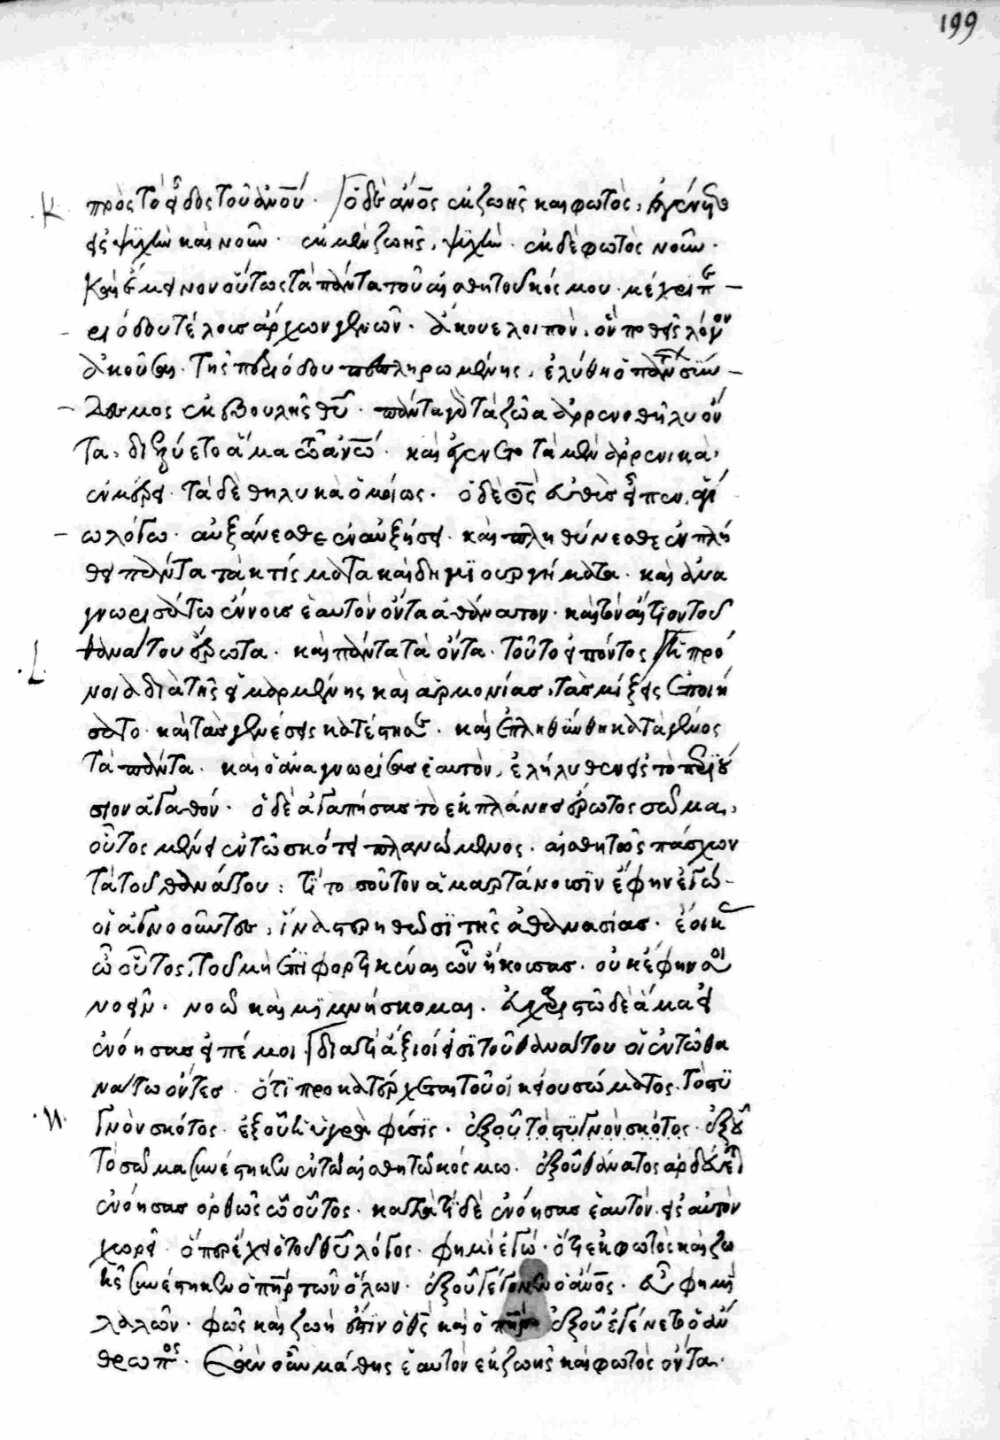 199
κ πρὸς τὸ εἶδος τοῦ ἀνοῦ. ὁ δὲ ἄνος ἐκ ζωῆς καὶ φωτὸς, ἐγένετο
εἰς ψυχὴν καὶ νοῦν. ἐκ μὲν ζωῆς, ψυχὴν. ἐκ δὲ φωτὸς νοῦν.
καὶ ἔμεινεν οὕτως τὰ πάντα τοῦ αἰσθητοῦ κόσμου. μέχρι πε -
- ριόδου τέλους ἀρχῶν γενῶν. ἄκουε λοιπὸν, ὃν ποθεῖς λόγον
ἀκοῦσαι. τῆς περιόδου πεπληρωμένης, ἐλύθη ὁ πάντων σύν -
- δεσμος ἐκ βουλῆς θῦ. πάντα γὰρ τὰ ζῶα ἀρρενοθήλυ ὄν
τα, διελύετο ἅμα τῶ ἀνῶ. καὶ ἐγένετο τὰ μὲν ἀρρενικὰ
ἐν μέρει. τὰ δὲ θηλυκὰ ὁμοίως. ὁ δὲ θς εὐθὺς εἶπεν ἁγί
- ω λόγω. αὐξάνεσθε ἐν αὐξήσει. καὶ πληθύνεσθε ἐν πλή
θει πάντα τὰ κτίσματα καὶ δημιουργήματα. καὶ ἀνα
γνωρισάτω ἔννους ἑαυτὸν ὄντα ἀθάνατον. καὶ τὸν αἴτιον τοῦ
θανάτου ἔρωτα. καὶ πάντα τὰ ὄντα. τοῦτο εἰπόντος ἡ πρό
L νοια διὰ τῆς εἱμαρμένης καὶ ἁρμονίας, τὰς μίξεις ἐποιή
σατο. καὶ τὰς γενέσεις κατέστησε. καὶ ἐπληθύνθη κατὰ γένος
τὰ πάντα. καὶ ὁ ἀναγνωρίσας ἑαυτὸν, ἐλήλυθεν εἰς τὸ περιού
σιον ἀγαθόν. ὁ δὲ ἀγαπήσας τὸ ἐκ πλάνης ἔρωτος σῶμα,
οὗτος μένει ἐν τῶ σκότει πλανώμενος. αἰσθητῶς πάσχων
τὰ τοῦ θανάτου: τί τοσοῦτον ἁμαρτάνουσιν ἔφην ἐγώ -
οἱ ἀγνοοῦντες, ἵνα στερηθῶσι τῆς ἀθανασίας. ἔοικας
ὦ οὗτος, τοῦ μὴ πεφροντικέναι ὧν ἤκουσας. οὐκ ἔφην σοι
νοεῖν. νοῶ καὶ μιμνήσκομαι. εὐχαριστῶ δὲ ἅμα εἰ
ἐνόησας εἰπέ μοι διατί ἄξιοί εἰσι τοῦ θανάτου οἱ ἐν τῶ θα
νάτω ὄντες. ὅτι προκατάρχεται τοῦ οἰκείου σώματος. τὸ στυ
Μ γνὸν σκότος. ἐξ οὗ ἡ ὑγρὰ φύσις. ἐξ οὗ τὸ στυγνὸν σκότος. ἐξ οὗ
τὸ σῶμα συνέστηκεν ἐν τῶ αἰσθητῶ κόσμω. ἐξ οὗ θάνατος ἀρδεύεται
ἐνόησας ὀρθῶς ὦ οὗτος. κατὰ τί δὲ ἐνόησας ἑαυτὸν. εἰς αὐτὸν
χωρεῖ. ὅπερ ἔχει ὁ τοῦ θῦ λόγος. φημὶ ἐγώ. ὅτι ἐκ φωτὸς καὶ ζω
ῆς συνέστηκεν ὁ πηρ τῶν ὅλων. ἐξ οὗ γέγονεν ὁ ἄνος. εὖ φημὶ
λαλῶν. φῶς καὶ ζωή ἐστιν ὁ θς καὶ ὁ πηρ ἐξ οὗ ἐγένετο ὁ ἄν
θρωπος. ἐὰν οὖν μάθης ἑαυτὸν ἐκ ζωῆς καὶ φωτὸς ὄντα.